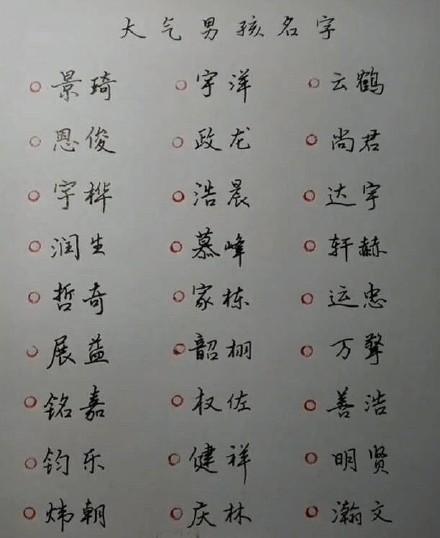 大气男孩名字
景琦 宇洋 云鹤
恩俊 政龙 尚君
宇桦 浩晨 达宇
润生 慕峰 轩赫
哲奇 家栋 运忠
展益 韶栩 万聲
铭嘉 权佐 善浩
钧乐 健祥 明贤
炜朝 庆林 瀚文